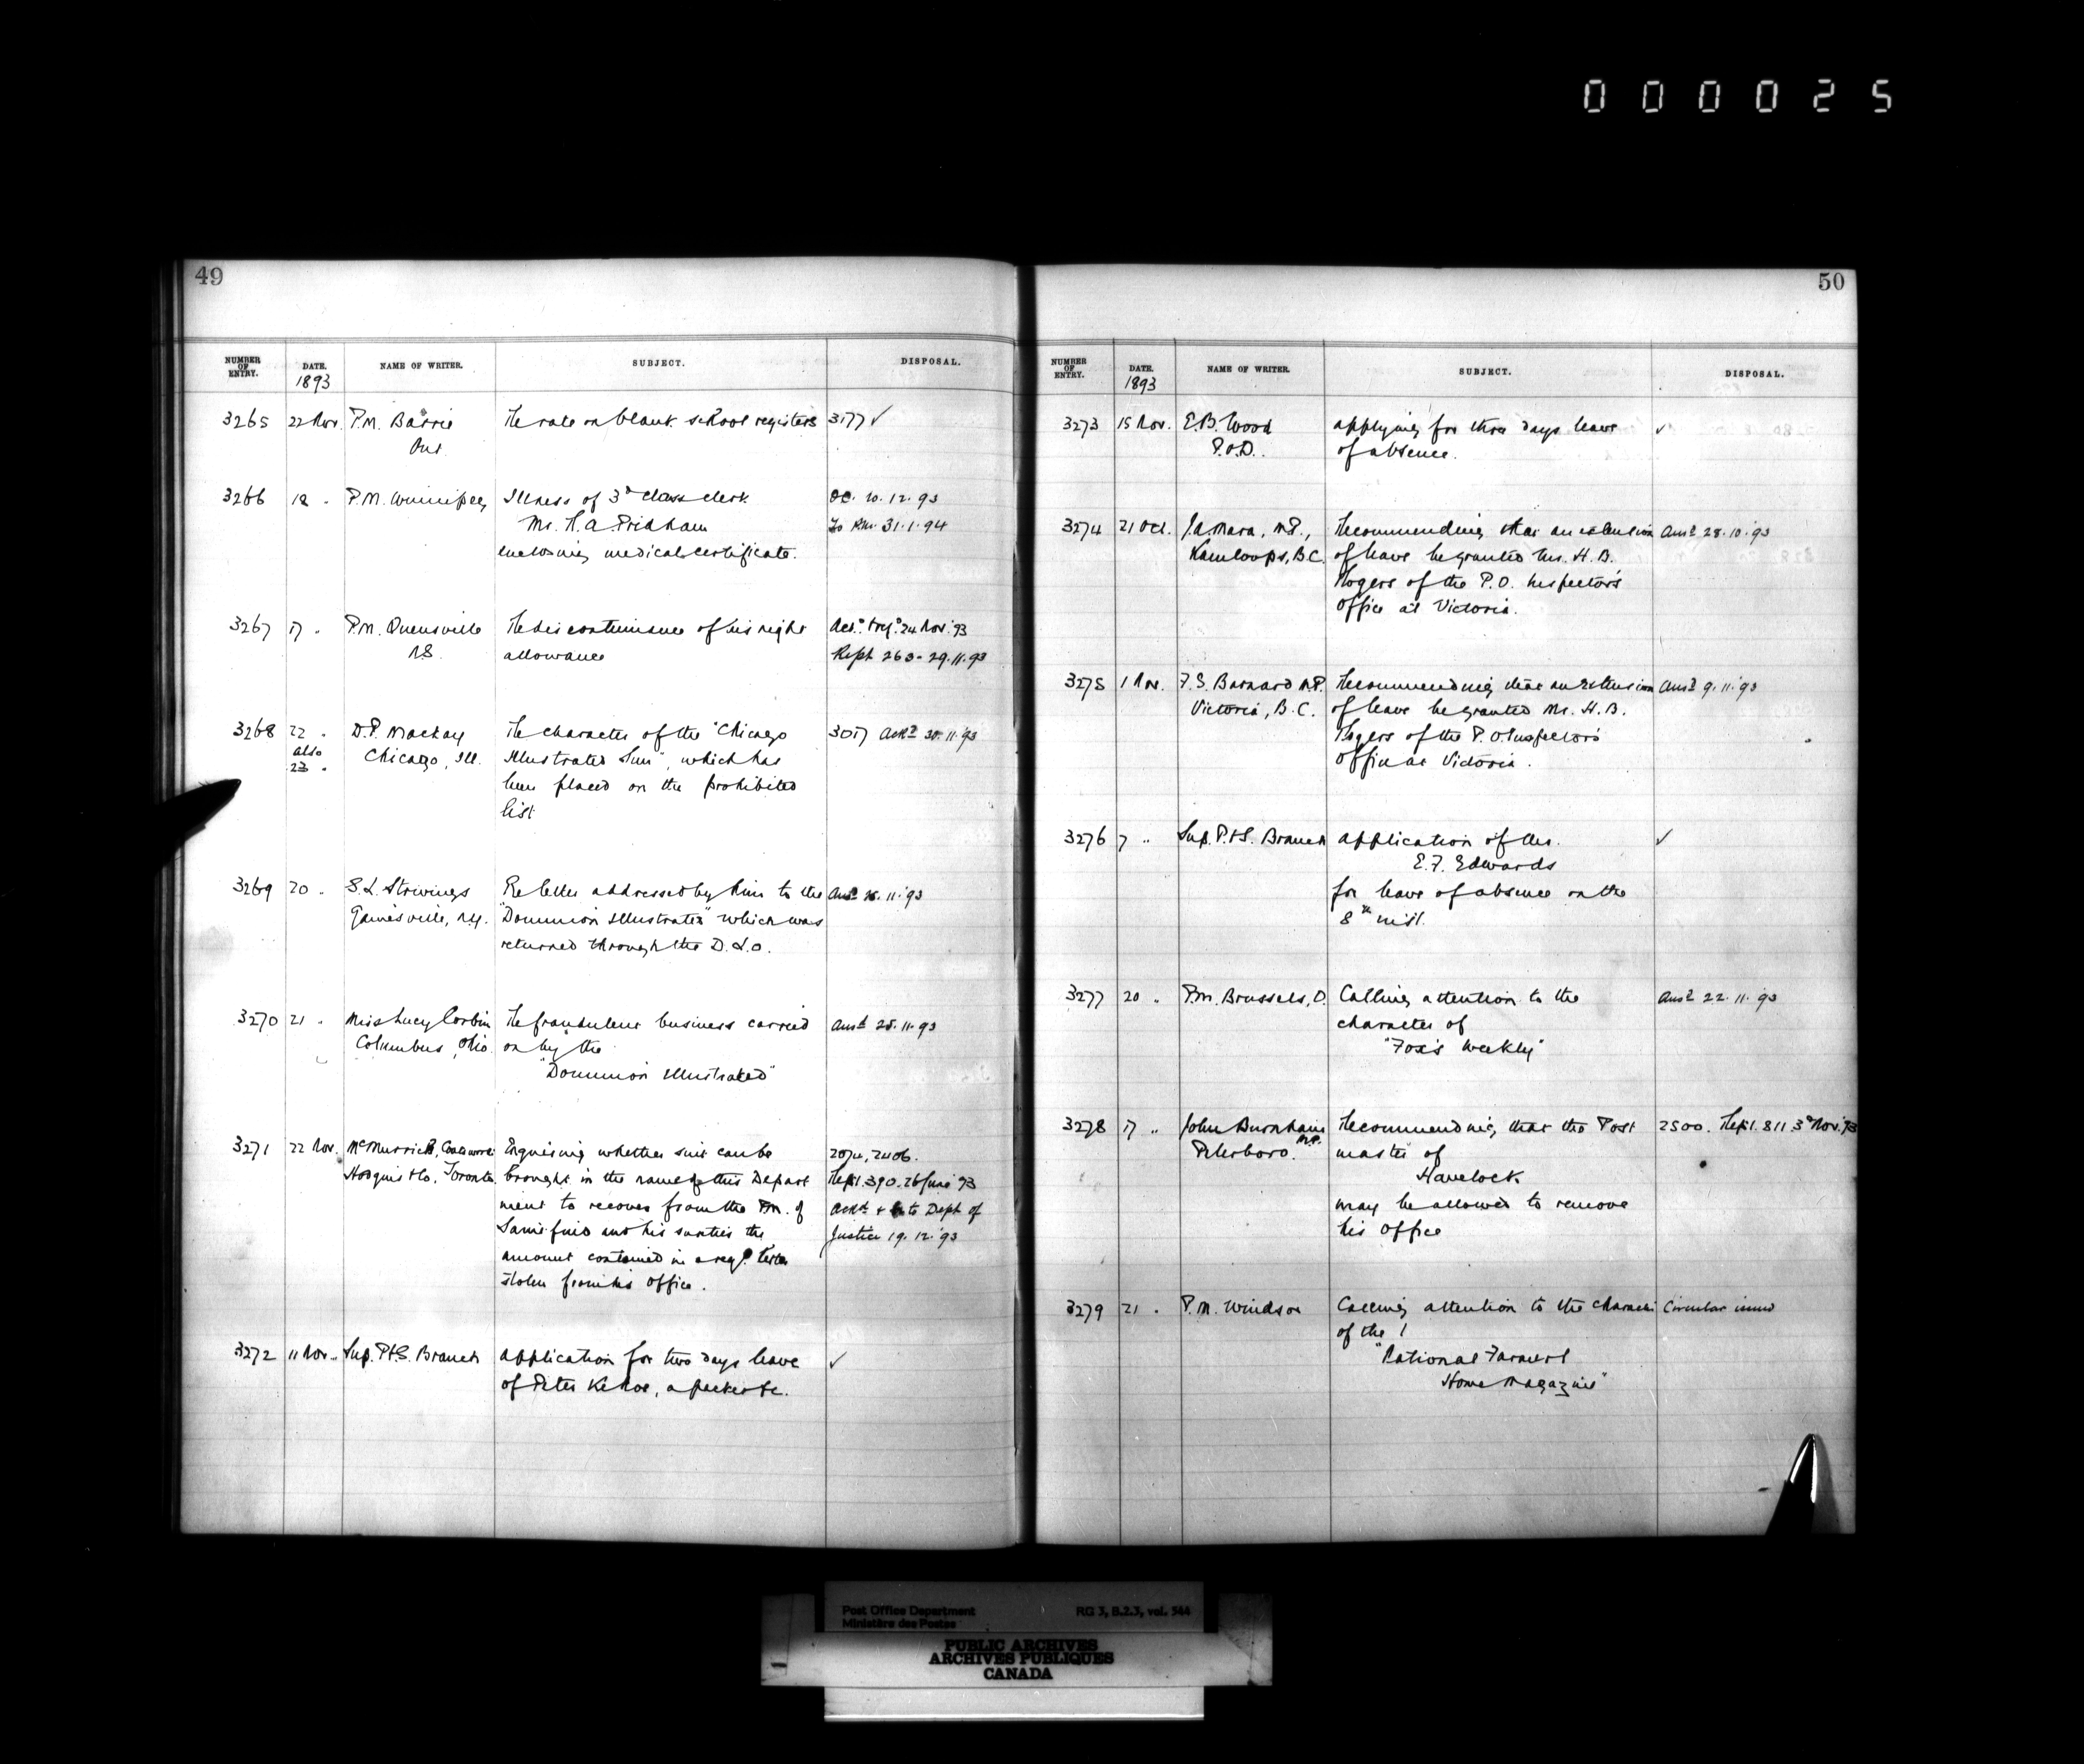 000025
49
NUMBER OF ENTRY. DATE. NAME OF WRITER. SUBJECT. DISPOSAL.
1893
3265 22 Nov. P.M. Barrie The rate on blank school registers 3177 ✓
Ont.
3266 18 " P.M. Winnipeg Illness of 3d class clerk 20.12.93
Mr. H.A. Pridham To P.M. 31.1.94
enclosing medical certificate.
3267 17 " P.M. Queensville The discontinuance of his night 24 Nov. 93
N.S. allowance Rept 263 - 29.11.93
3268 22 " D.P. Mackay The character of the "Chicago 3017 Ackd 30.11.93
also Chicago, Ill. Illustrated Sun", which has
23 " been placed on the prohibited
list
3269 20 " S.L. Strivings Re letter addressed by him to the Ansd 25.11.93
Gainesville, N.Y. "Dominion Illustrated" which was
returned through the D.L.O.
3270 21 " Miss Lucy Corbin The fraudulent business carried Ansd 25.11.93
Columbus, Ohio. on by the
"Dominion Illustrated"
3271 22 Nov. McMurrich, Coatsworth Enquiring whether suit can be 2074, 2406.
Hodgins & Co. Toronto. brought in the name of this Depart Rept. 390. 26 June 93
ment to recover from the P.M. of Ackd & to Dept of
and his sureties the Justice 19.12.93
amount contained in a regd. letter
stolen from his office.
3272 11 Nov. Sup. P.&S. Branch Application for two days leave ✓
of Peter Kehoe, a packer &c.
50
NUMBER OF ENTRY. DATE. NAME OF WRITER. SUBJECT. DISPOSAL.
1893
3273 15 Nov. E.B. Wood applying for three days leave ✓
P.O.D. of absence.
3274 21 Oct. J.A. Mara, M.P., Recommending that an extension Ansd 28.10.93
Kamloops, B.C. of leave be granted Mr. H.B.
Rogers of the P.O. Inspector's
Office at Victoria.
3275 1 Nov. F.S. Barnard M.P. Recommending that an extension Ansd 9.11.93
Victoria, B.C. of leave be granted Mr. H.B.
Rogers of the P.O. Inspector's
Office at Victoria.
3276 7 " Sup. P.&S. Branch Application of Mr. ✓
E.F. Edwards
for leave of absence on the
8th inst.
3277 20 " P.M. Brussels, O. Calling attention to the Ansd 22.11.93
character of
"Fox's Weekly"
3278 17 " John Burnham Recommending that the Post 2500. Rept. 811 3d Nov. 93
M.P.
Peterboro. master of
Havelock
may be allowed to remove
his office
3279 21 " P.M. Windsor Calling attention to the character Circular issued
of the
"National Farm &
Home Magazine"
Post Office Department RG 3, B.2.3, vol. 544
Ministère des Postes
PUBLIC ARCHIVES
ARCHIVES PUBLIQUES
CANADA